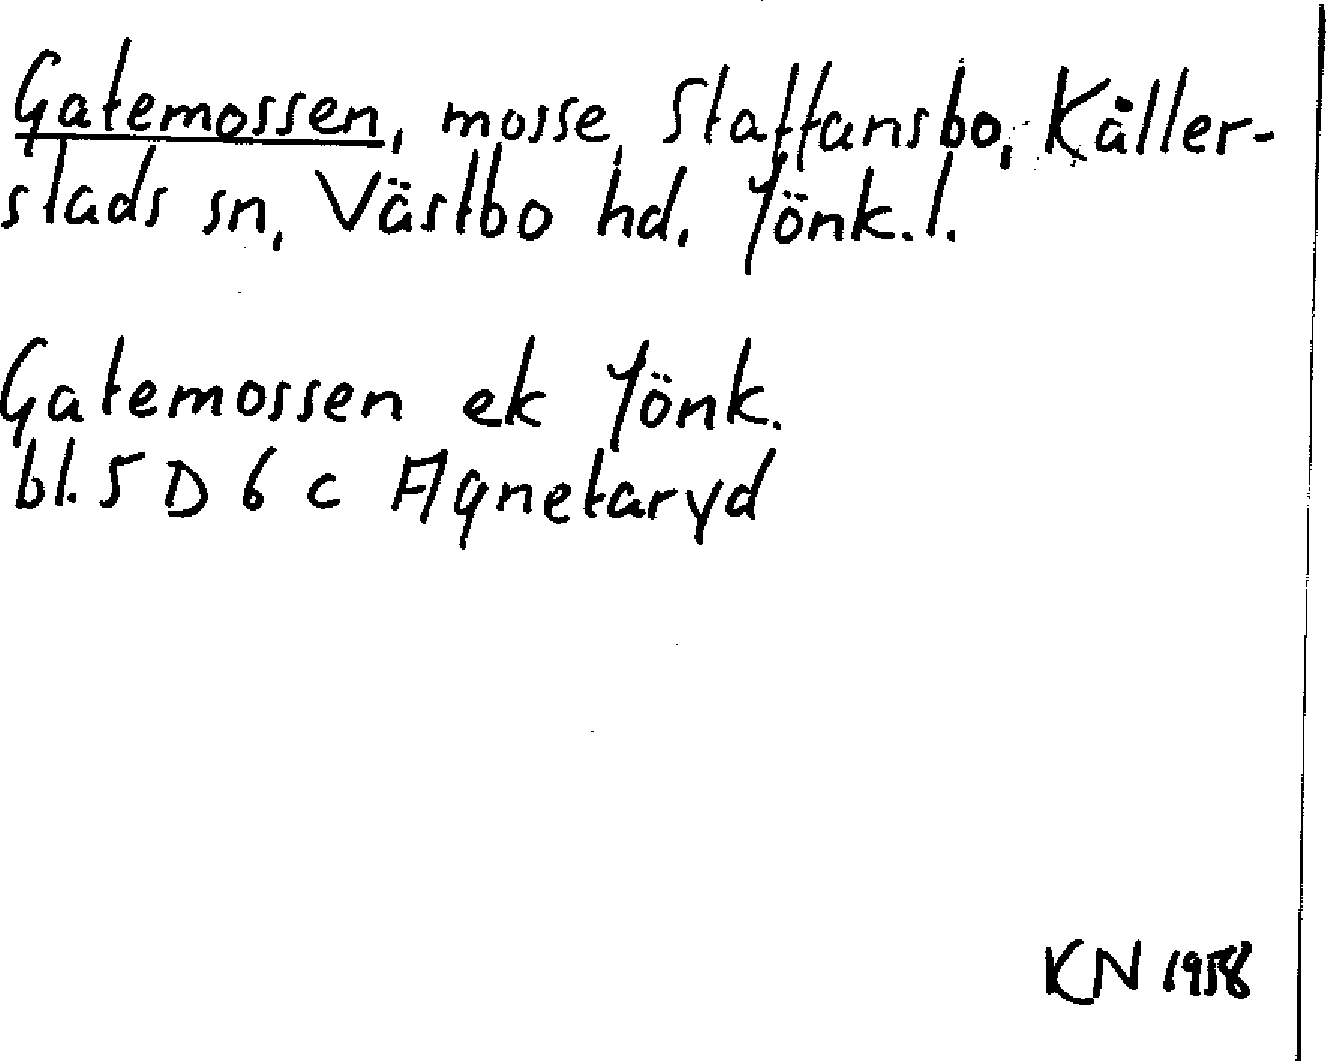 Gatemossen, mosse, Staffansbo, Kåller-
stads sn, Västbo hd, Jönk. l.
Gatemossen ek Jönk.
bl. 5 D 6 c Agnetaryd
KN 1958